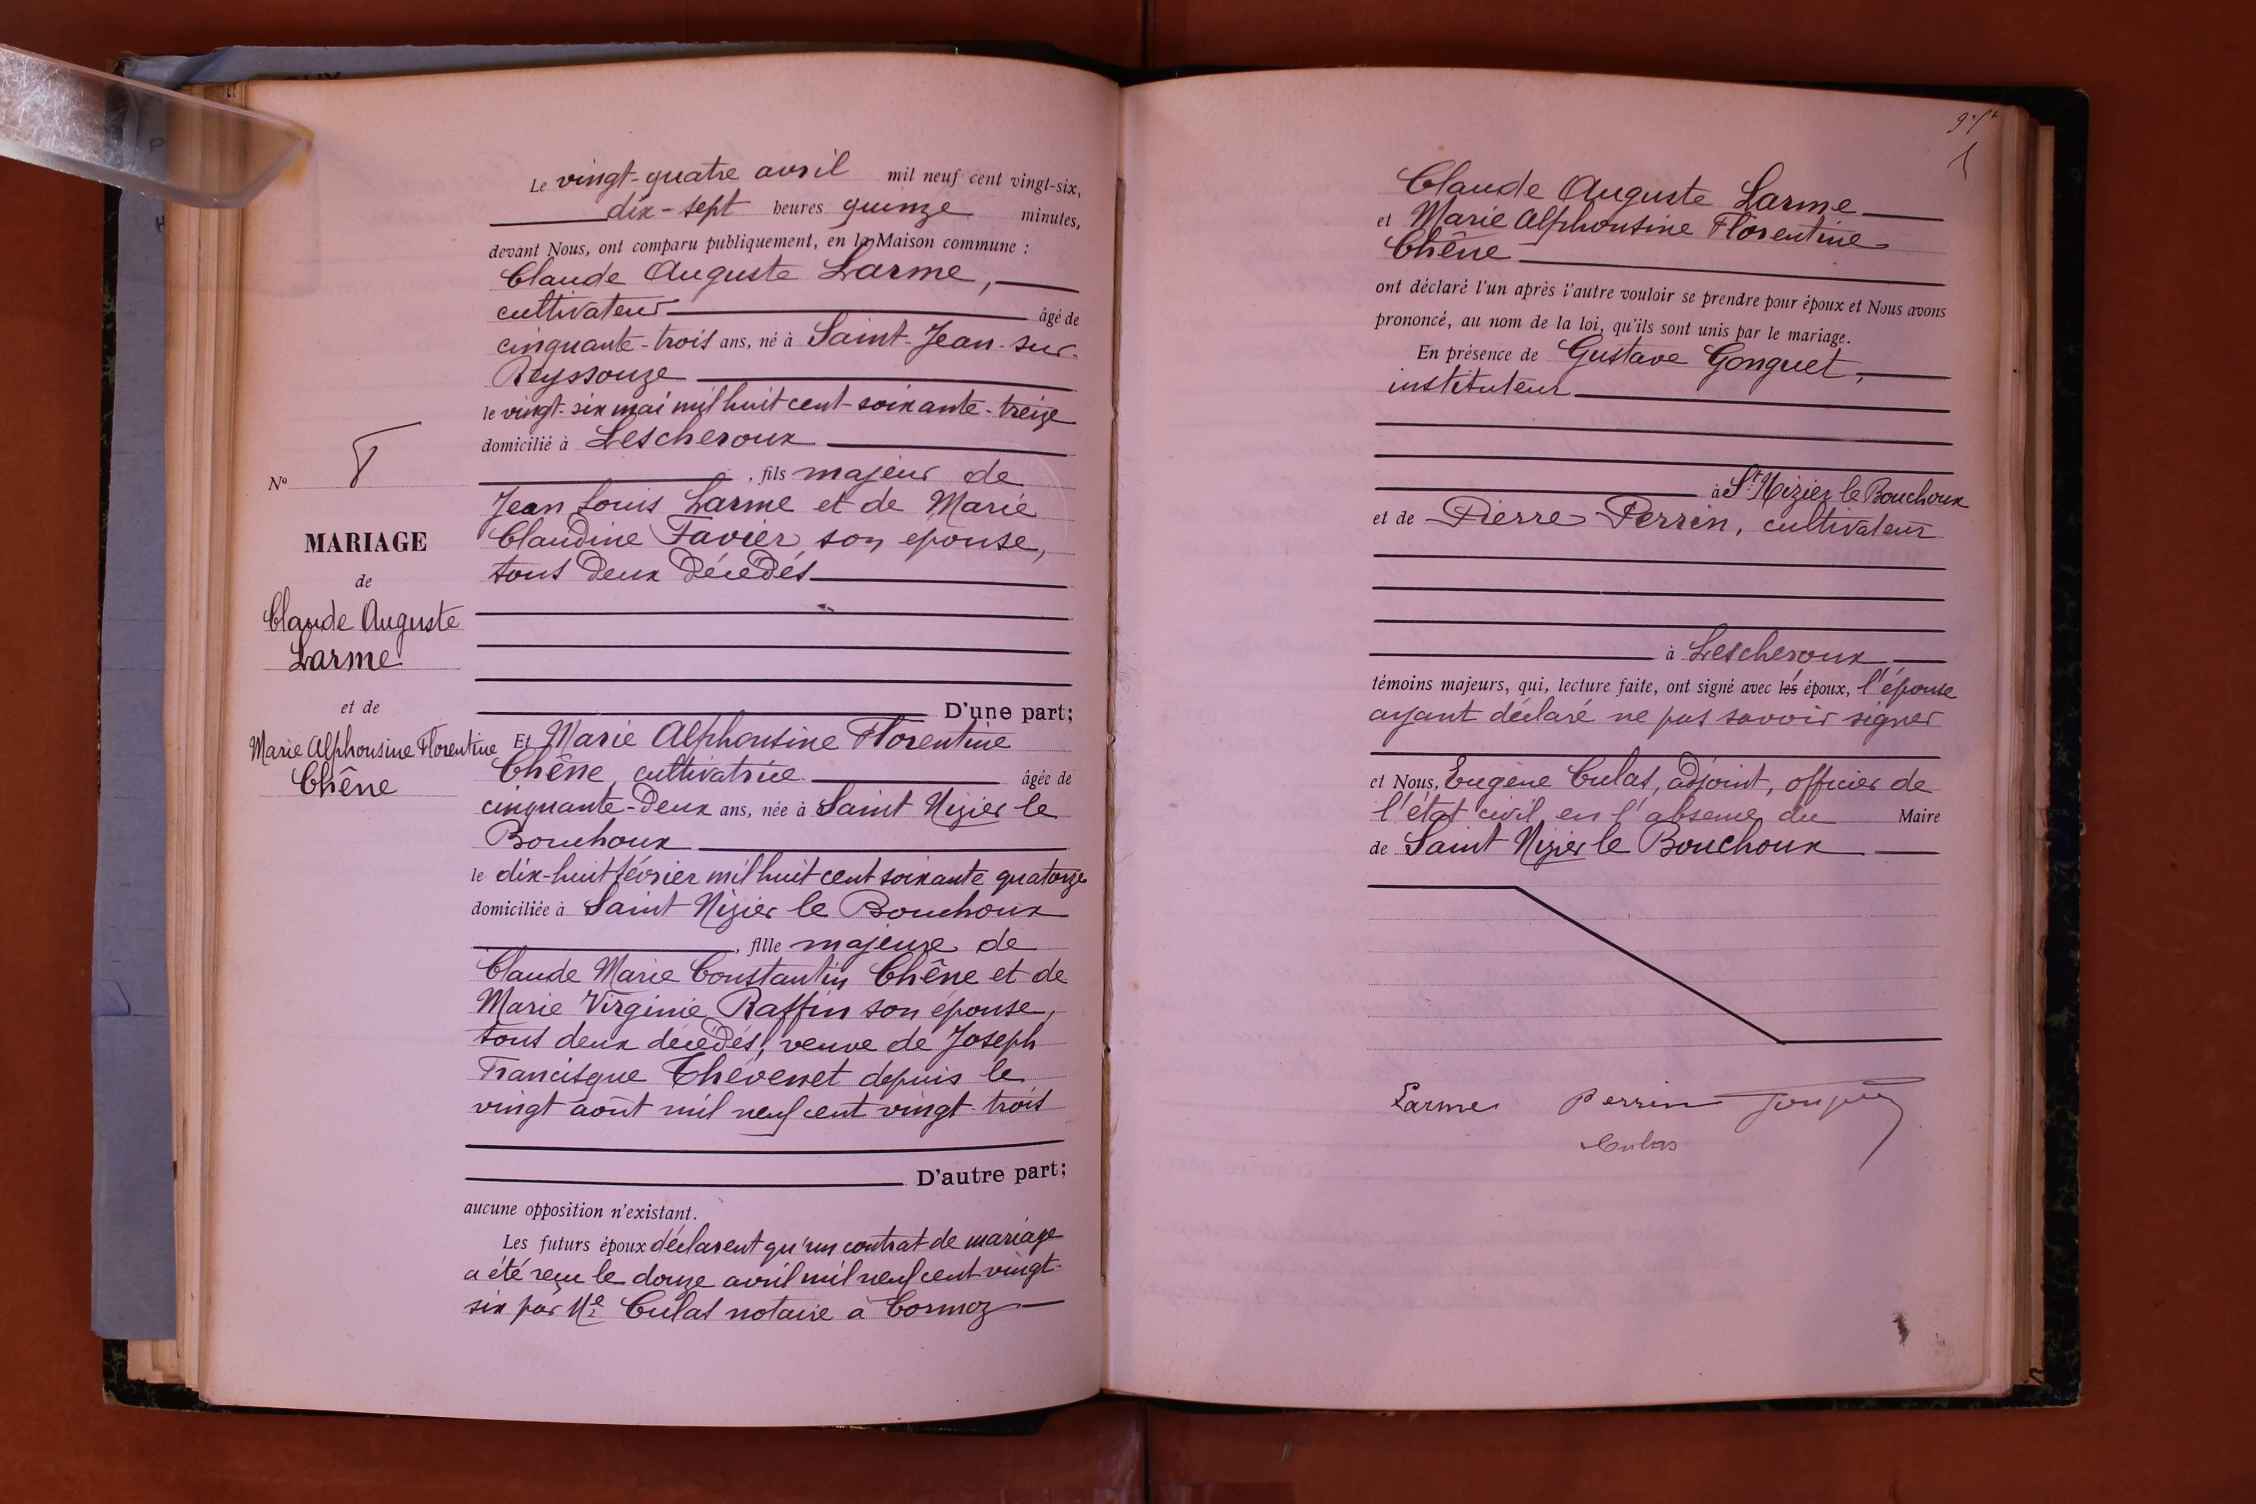 Nº 8
MARIAGE
de
Claude Auguste
Larme
et de
Marie Alphonsine Florentine
Chêne
Le vingt-quatre avril mil neuf cent vingt-six,
dix-sept heures quinze minutes,
devant Nous, ont comparu publiquement, en la Maison commune :
Claude Auguste Larme,
cultivateur âgé de
cinquante-trois ans, né à Saint-Jean-sur-
Reyssouze
le vingt-six mai mil huit cent-soixante-treize
domicilié à Lescheroux
, fils majeur de
Jean Louis Larme et de Marie
Claudine Favier son épouse,
tous deux décédés
D'une part;
Et Marie Alphonsine Florentine
Chêne, cultivatrice âgée de
cinquante-deux ans, née à Saint Nizier le
Bouchoux
le dix-huit février mil huit cent soixante quatorze
domiciliée à Saint Nizier le Bouchoux
, fille majeure de
Claude Marie Constantin Chêne et de
Marie Virginie Raffin son épouse,
tous deux décédés, veuve de Joseph
Francisque Thévenet depuis le
vingt août mil neuf cent vingt-trois
D'autre part;
aucune opposition n'existant.
Les futurs époux déclarent qu'un contrat de mariage
a été reçu le douze avril mil neuf cent vingt-
six par Me Culas notaire à Cormoz
Claude Auguste Larme
et Marie Alphonsine Florentine
Chêne
ont déclaré l'un après l'autre vouloir se prendre pour époux et Nous avons
prononcé, au nom de la loi, qu'ils sont unis par le mariage.
En présence de Gustave Gonguet,
instituteur
à St Nizier le Bouchoux
et de Pierre Perrin, cultivateur
à Lescheroux
témoins majeurs, qui, lecture faite, ont signé avec lés époux, l'épouse
ayant déclaré ne pas savoir signer
et Nous, Eugène Culas, adjoint, officier de
l'état civil en l'absence du Maire
de Saint Nizier le Bouchoux
Larme Perrin
Culas